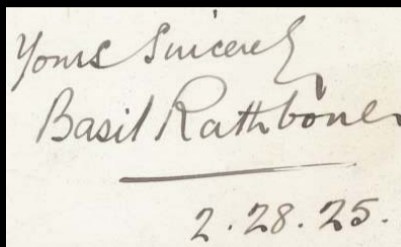 Yours Sincerely
Basil Rathbone
2.28.25.